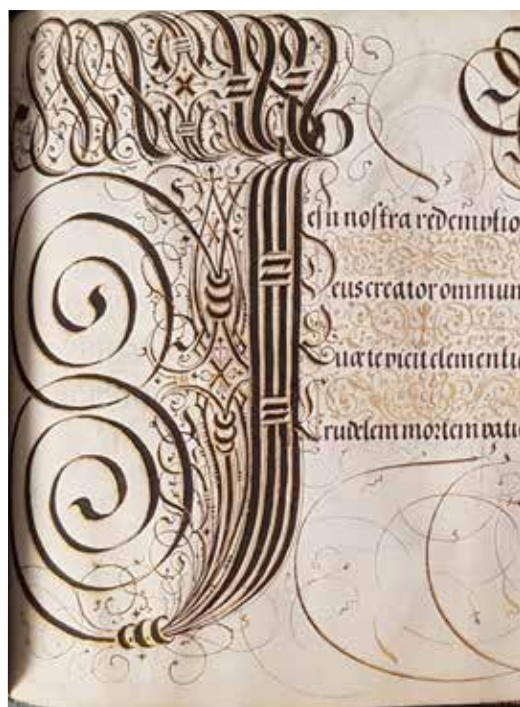 Jesu nostra redemptio
Deus creator omnium
Quæ te vicit clementi
Crudelem mortem pati